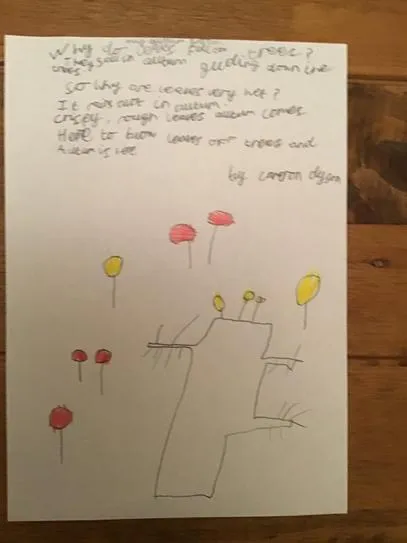 Why do leaves fall on trees?
They fall in autum guding down the
trees
So why are leaves very wet?
It rains out in autum.
crispy, rough leaves autum comes
Here to blow leaves off trees and
Autum is here
by cameron